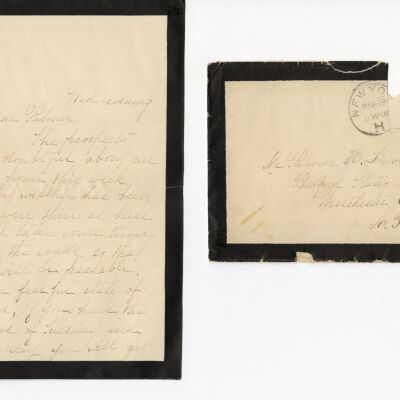 Wed-evening
ar Palmer.
The prospects
doubtful about me
home this week
weather has been
vere there as here
take some time
the roads so that
will be passable.
a fearful state of
if you have the
of Tuesday and
you will get
NEW YO
MAR 18
H
Mr Palmer H.
Bedford Stati
Westchester
N.